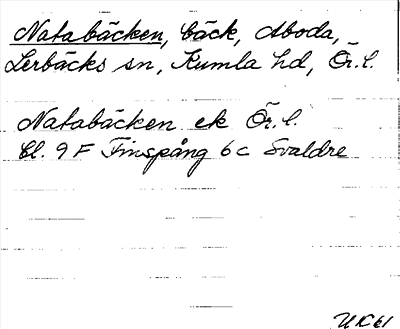 Natabäcken, bäck, Aboda,
Lerbäcks sn, Kumla hd, Ör. l.
Natabäcken ek Ör. l.
Bl. 9 F Finspång 6 c Svaldre
U K 61